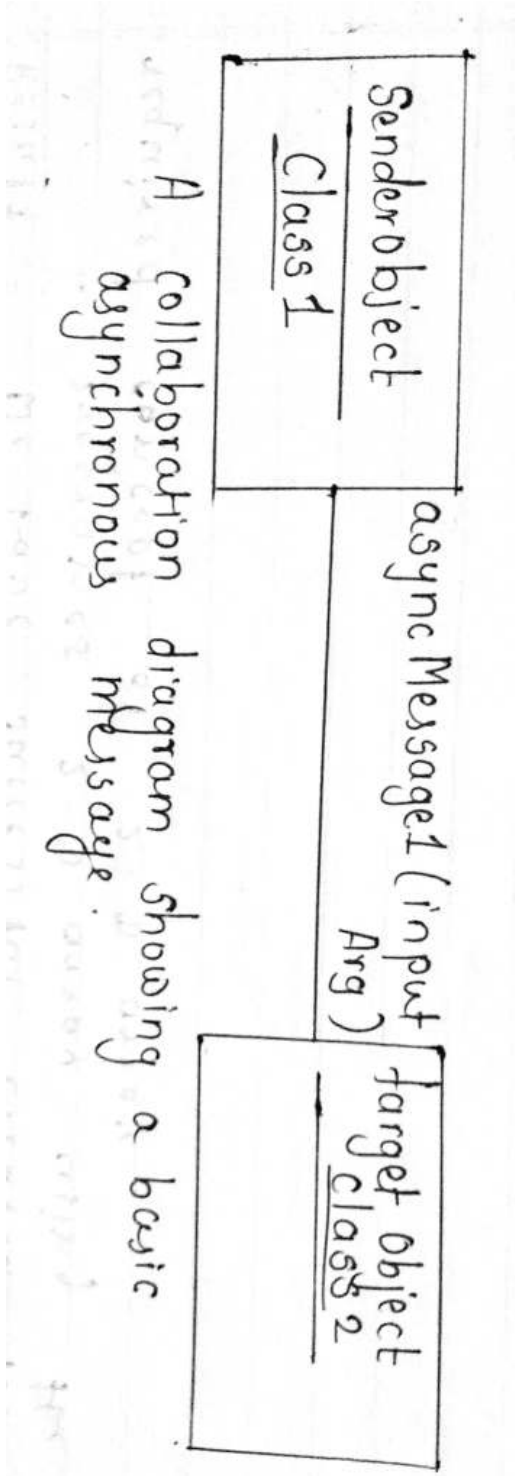 Senderobject
Class 1
async Message1 (input
Arg)
Target object
class 2
A collaboration diagram showing a basic
asynchronous message.